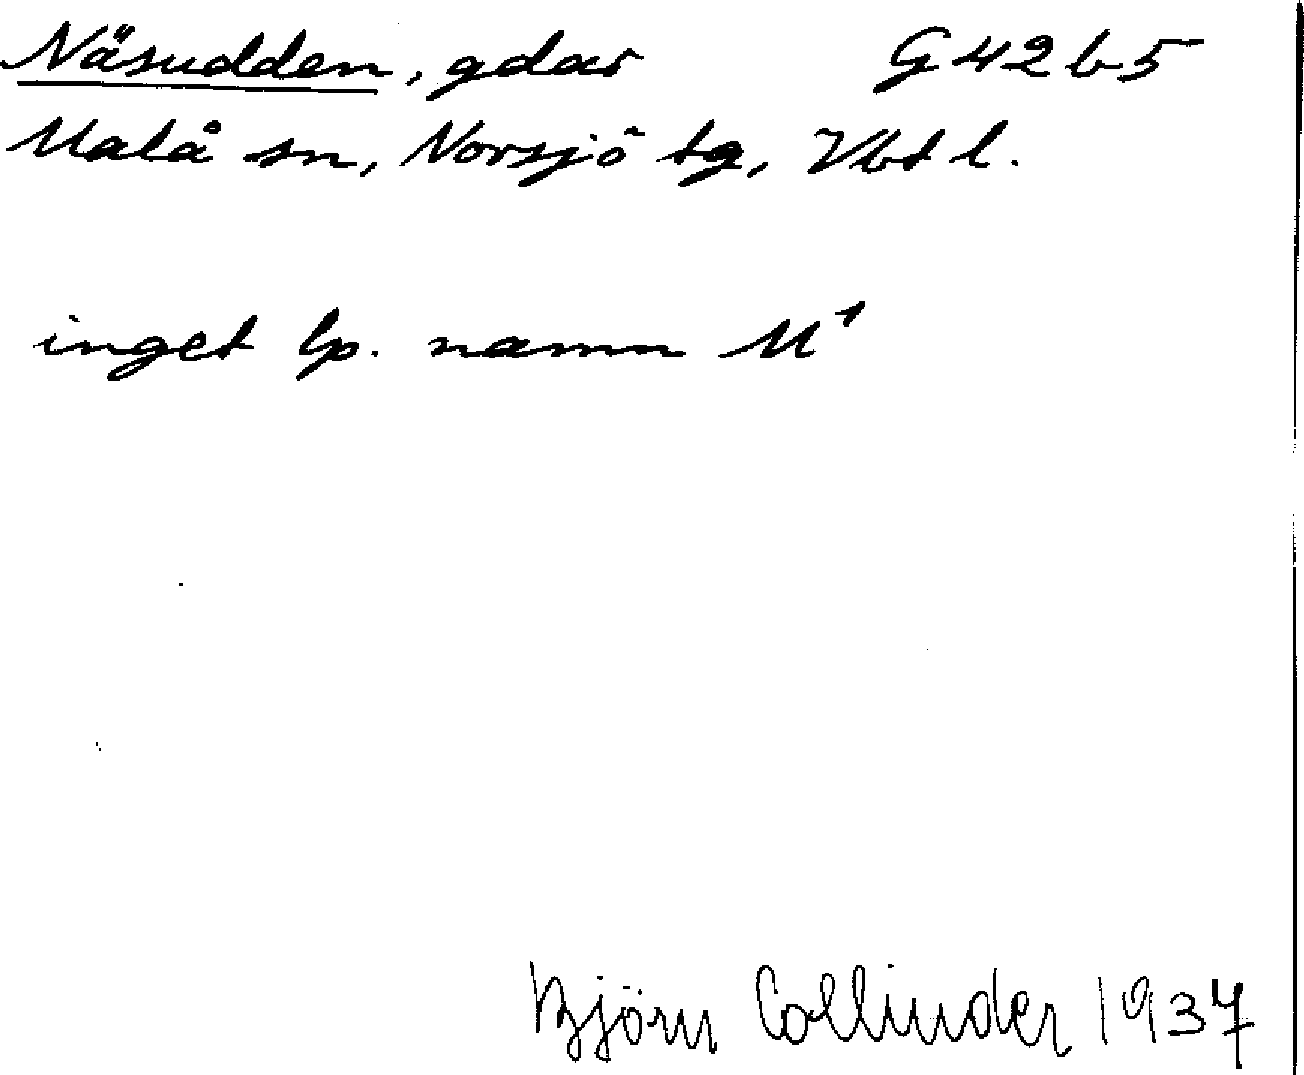 Näsudden, gdar G42b5
Malå sn, Norsjö tg, Vbt l.
inget lp. namn M¹
Björn Collinder 1937